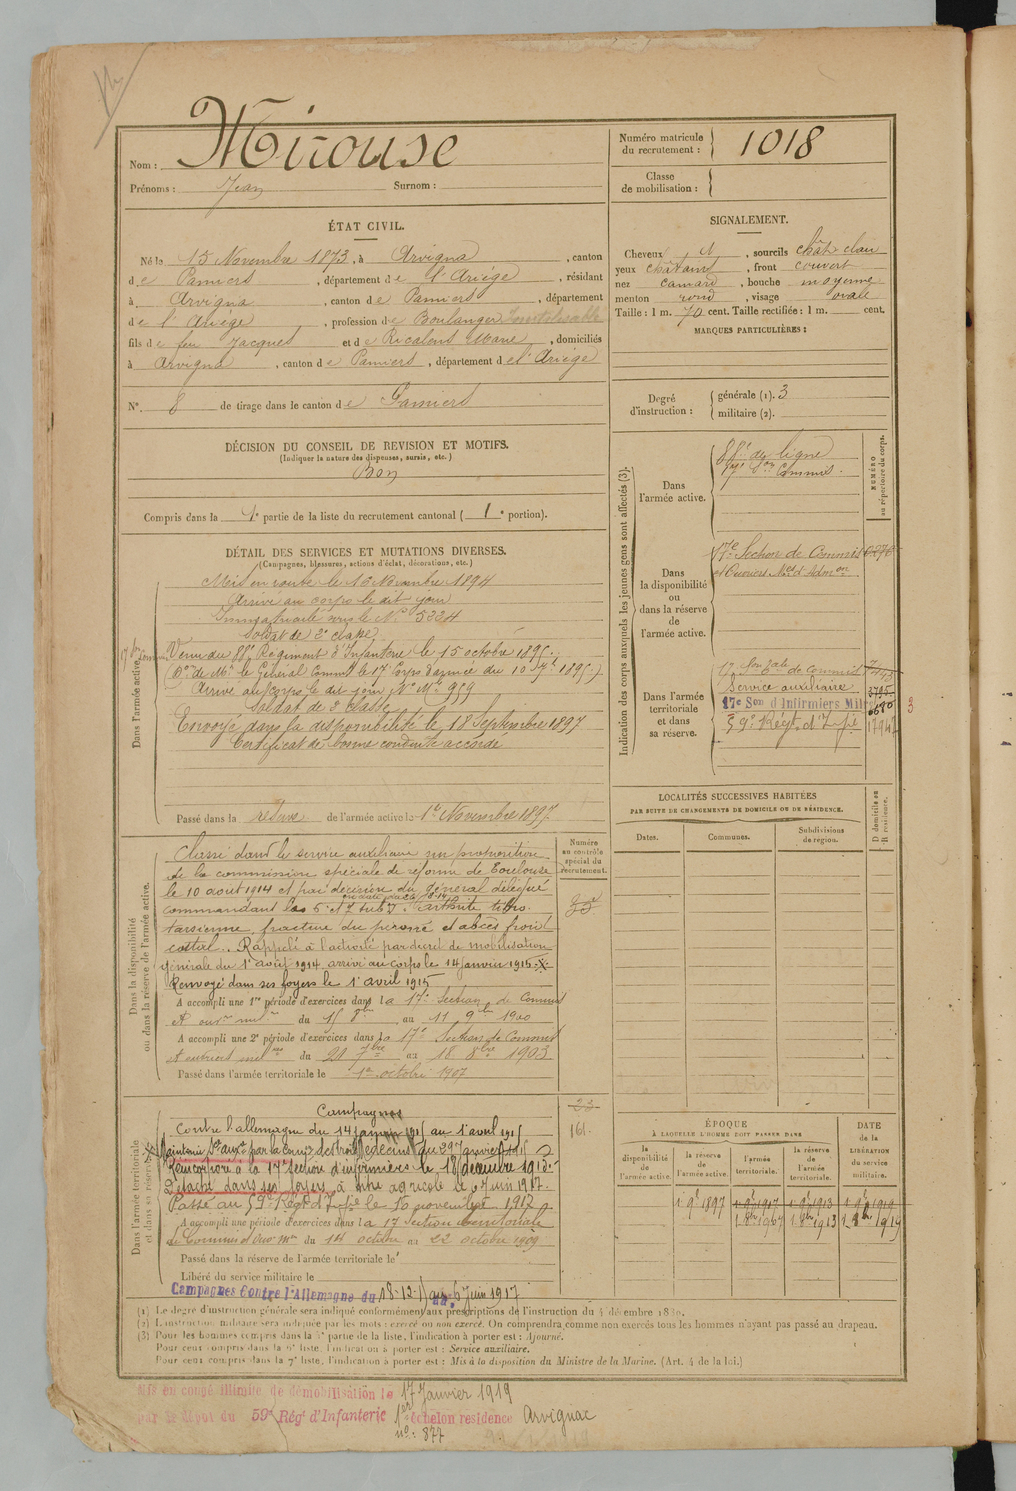 Nom : Mirouse
Prénoms : Jean Surnom :
Numéro matricule du recrutement : 1018
Classe de mobilisation :
ÉTAT CIVIL.
Né le 15 Novembre 1873, à Arvigna, canton
de Pamiers, département de l'Ariège, résidant
à Arvigna, canton de Pamiers, département
de l'Ariège, profession de Boulanger
fils de feu Jacques et de Ricalens Marie, domiciliés
à Arvigna, canton de Pamiers, département de l'Ariège
N° 8 de tirage dans le canton de Pamiers
SIGNALEMENT.
Cheveux , sourcils chât clair
yeux châtains, front couvert
nez camard, bouche moyenne
menton rond, visage ovale
Taille : 1 m. 70 cent. Taille rectifiée : 1 m. cent.
MARQUES PARTICULIÈRES :
Degré d'instruction : générale (1). 3
militaire (2).
DÉCISION DU CONSEIL DE REVISION ET MOTIFS.
(Indiquer la nature des dispenses, sursis, etc.)
Bon
Compris dans la 1e partie de la liste du recrutement cantonal ( 1e portion).
DÉTAIL DES SERVICES ET MUTATIONS DIVERSES.
(Campagnes, blessures, actions d'éclat, décorations, etc.)
Dans l'armée active.
Mis en route le 16 Novembre 1894
Arrivé au corps le dit jour
Immatriculé sous le N° 5224
Soldat de 2e classe
Venu du 88e Régiment d'Infanterie le 15 octobre 1895.
(Don de Mr le Général Commt le 17e Corps d'armée du 10 7bre 1895.)
Arrivé au corps le dit jour N° Mle 959
Soldat de 2e classe
Envoyé dans la disponibilité le 18 Septembre 1897
Certificat de bonne conduite accordé
Passé dans la réserve de l'armée active le 1er Novembre 1897
Indication des corps auxquels les jeunes gens sont affectés (3).
NUMÉRO au répertoire du corps.
Dans l'armée active.
88e de ligne
17e Son Commis.
Dans la disponibilité ou dans la réserve de l'armée active.
17e Section de Commis
et Ouvriers Mres d'Admon
Dans l'armée territoriale et dans sa réserve.
17e Son tale de Commis
Service auxiliaire
17e Son d'Infirmiers Mil
59e Régt d'Infie
3
LOCALITÉS SUCCESSIVES HABITÉES
PAR SUITE DE CHANGEMENTS DE DOMICILE OU DE RÉSIDENCE.
Dates. Communes. Subdivisions de région. D domicile ou R résidence.
Dans la disponibilité ou dans la réserve de l'armée active.
Numéro au contrôle spécial du recrutement.
Classé dans le service auxiliaire sur proposition
de la commission spéciale de réforme de Toulouse
le 10 août 1914 et par décision du général délégué
commandant les 5e et 7e subd. arthrite tibio
tarsienne, fracture du péroné et abcès froid
costal. Rappelé à l'activité par décret de mobilisation
générale du 1er août 1914 arrivé au corps le 14 janvier 1915.
Renvoyé dans ses foyers le 1er avril 1915
A accompli une 1re période d'exercices dans la 17e Section de Commis
et ouvr mil du 15 8bre au 11 9bre 1900
A accompli une 2e période d'exercices dans la 17e Section de Commis
et ouvriers milres du 21 7bre au 18 8bre 1903
Passé dans l'armée territoriale le 1er octobre 1907
Dans l'armée territoriale et dans sa réserve.
Campagnes
Contre l'allemagne du 14 janvier 1915 au 1er avril 1915
23
161.
Réincorporé à la 17e section d'infirmiers le 18 décembre 1915.
Détaché dans ses foyers à titre agricole le 6 juin 1917.
Passé au 59e Régt d'Infie le 10 novembre 1917
A accompli une période d'exercices dans la 17e Section territoriale
de Commis d'Ouv. Mre du 14 octobre au 22 octobre 1909
Passé dans la réserve de l'armée territoriale le
Libéré du service militaire le
Campagnes Contre l'Allemagne du 18-12-15 au 6 Juin 1917
ÉPOQUE
À LAQUELLE L'HOMME DOIT PASSER DANS
la disponibilité de l'armée active. la réserve de l'armée active. l'armée territoriale. la réserve de l'armée territoriale.
DATE de la LIBÉRATION du service militaire.
1 9e 1897 1 9e 1917 1 9e 1913 1 9e 1919
1 8bre 1907 1 8bre 1913 1 8bre 1919
(1) Le degré d'instruction générale sera indiqué conformément aux prescriptions de l'instruction du 4 décembre 1889.
(2) L'instruction militaire sera indiquée par les mots : exercé ou non exercé. On comprendra comme non exercés tous les hommes n'ayant pas passé au drapeau.
(3) Pour les hommes compris dans la 5e partie de la liste, l'indication à porter est : Ajourné.
Pour ceux compris dans la 6e liste, l'indication à porter est : Service auxiliaire.
Pour ceux compris dans la 7e liste, l'indication à porter est : Mis à la disposition du Ministre de la Marine. (Art. 4 de la loi.)
Mis en congé illimité de démobilisation le 17 Janvier 1919
par le dépôt du 59e Régt d'Infanterie 1er échelon résidence Arvignac
no : 877